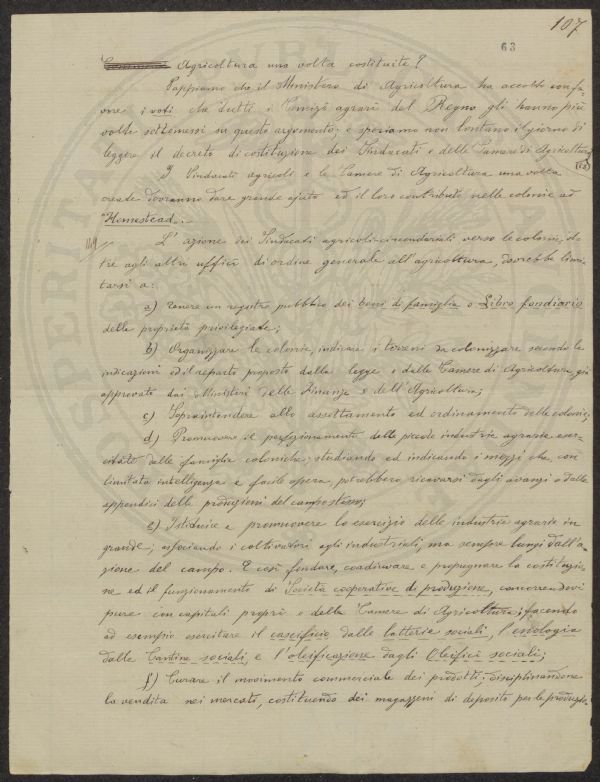 107
63
Agricoltura una volta costituite?
Sappiamo che il Ministero di Agricoltura ha accolto con fa-
vore i voti che tutti i Comizi agrari del Regno gli hanno più
volte sottomessi su questo argomento; e speriamo non lontano il giorno di
leggere il decreto di costituzione dei Sindacati e delle Camere di Agricoltura
I Sindacati agricoli e le Camere di Agricoltura una volta
create dovranno dare grande ajuto ed il loro contributo nelle colonie ad
"Homestead".
L'azione dei Sindacati agricoli-circondariali verso le colonie, ol-
tre agli altri uffici di ordine generale all'agricoltura, dovrebbe limi-
tarsi a:
a) Tenere un registro pubblico dei beni di famiglia o Libro fondiario
delle proprietà privilegiate;
b) Organizzare le colonie, indicare i terreni da colonizzare secondo le
indicazioni ed il reparto proposto dalla legge e dalle Camere di Agricoltura, già
approvato dai Ministeri delle Finanze e dell'Agricoltura;
c) Sopraintendere allo assettamento ed ordinamento delle colonie;
d) Promuovere il perfezionamento delle piccole industrie agrarie eser-
citate dalle famiglie coloniche; studiando ed indicando i mezzi che, con
limitata intelligenza e facile opera, potrebbero ricavarsi dagli avanzi o dalle
appendici delle produzioni del campo stesso;
e) Istituire e promuovere lo esercizio delle industrie agrarie in
grande; associando i coltivatori agli industriali, ma sempre lungi dall'a-
zione del campo. E così fondare, coadiuvare e propugnare la costituzio-
ne ed il funzionamento di Società cooperative di produzione, concorrendovi
pure con capitali proprî o delle Camere di Agricoltura; facendo
ad esempio esercitare il caseificio dalle latterie sociali, l'enologia
dalle Cantine sociali, e l'oleificazione dagli Oleifici sociali;
f) Curare il movimento commerciale dei prodotti; disciplinandone
la vendita nei mercati, costituendo dei magazzeni di deposito per le produzio-